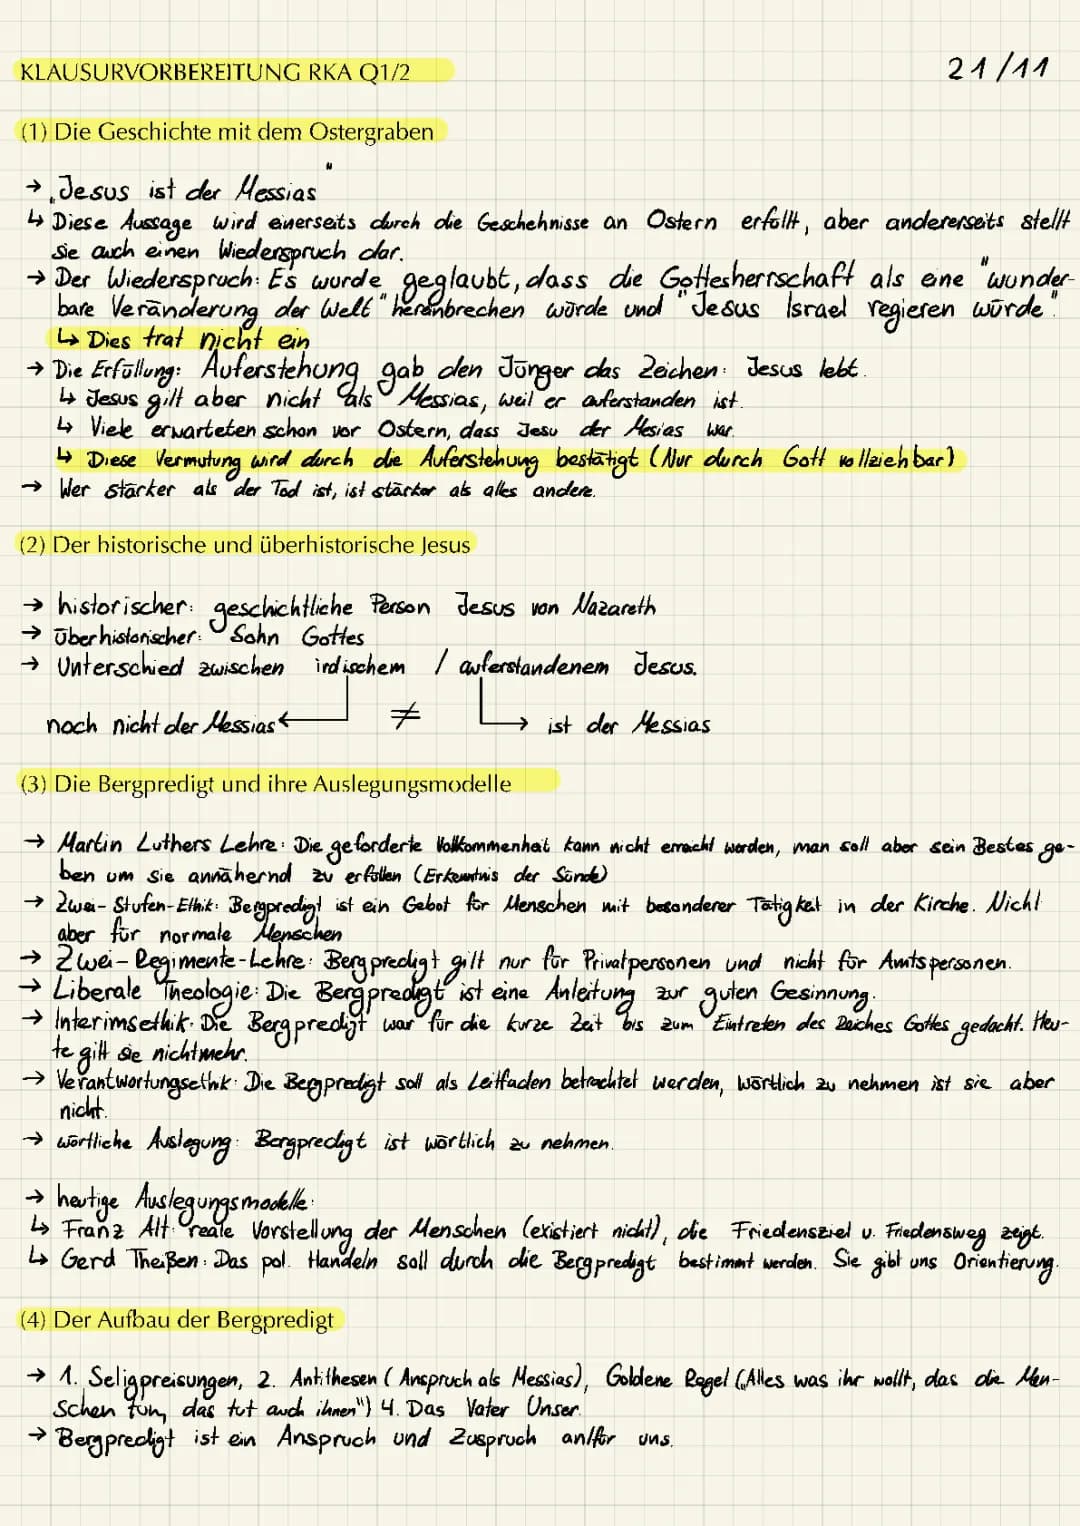 KLAUSURVORBEREITUNG RKA Q1/2
21/11
(1) Die Geschichte mit dem Ostergraben
→ „Jesus ist der Messias"
↳ Diese Aussage wird einerseits durch die Geschehnisse an Ostern erfüllt, aber andererseits stellt
sie auch einen Wiederspruch dar.
→ Der Wiederspruch: Es wurde geglaubt, dass die Gottesherrschaft als eine "wunder-
bare Veränderung der Welt" heranbrechen würde und "Jesus Israel regieren würde".
↳ Dies trat nicht ein
→ Die Erfüllung: Auferstehung gab den Jünger das Zeichen: Jesus lebt.
↳ Jesus gilt aber nicht als Messias, weil er auferstanden ist.
↳ Viele erwarteten schon vor Ostern, dass Jesu der Mesias war.
↳ Diese Vermutung wird durch die Auferstehung bestätigt (Nur durch Gott vollziehbar)
→ Wer stärker als der Tod ist, ist stärker als alles andere.
(2) Der historische und überhistorische Jesus
→ historischer: geschichtliche Person Jesus von Nazareth
→ überhistorischer: Sohn Gottes
→ Unterschied zwischen irdischem / auferstandenem Jesus.
noch nicht der Messias ← ≠ → ist der Messias
(3) Die Bergpredigt und ihre Auslegungsmodelle
→ Martin Luthers Lehre: Die geforderte Vollkommenheit kann nicht erreicht werden, man soll aber sein Bestes ge-
ben um sie annähernd zu erfüllen (Erkenntnis der Sünde)
→ Zwei-Stufen-Ethik: Bergpredigt ist ein Gebot für Menschen mit besonderer Tätigkeit in der Kirche. Nicht
aber für normale Menschen
→ Zwei-Regimente-Lehre: Bergpredigt gilt nur für Privatpersonen und nicht für Amtspersonen.
→ Liberale Theologie: Die Bergpredigt ist eine Anleitung zur guten Gesinnung.
→ Interimsethik: Die Bergpredigt war für die kurze Zeit bis zum Eintreten des Reiches Gottes gedacht. Heu-
te gilt sie nicht mehr.
→ Verantwortungsethik: Die Bergpredigt soll als Leitfaden betrachtet werden, wörtlich zu nehmen ist sie aber
nicht.
→ wörtliche Auslegung: Bergpredigt ist wörtlich zu nehmen.
→ heutige Auslegungsmodelle:
↳ Franz Alt: reale Vorstellung der Menschen (existiert nicht), die Friedensziel u. Friedensweg zeigt.
↳ Gerd Theißen: Das pol. Handeln soll durch die Bergpredigt bestimmt werden. Sie gibt uns Orientierung.
(4) Der Aufbau der Bergpredigt
→ 1. Seligpreisungen, 2. Antithesen (Anspruch als Messias), Goldene Regel („Alles was ihr wollt, das die Men-
schen tun, das tut auch ihnen") 4. Das Vater Unser.
→ Bergpredigt ist ein Anspruch und Zuspruch an/für uns.